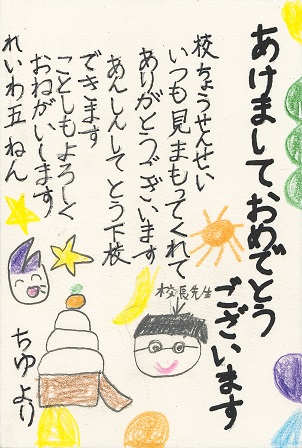 あけましておめでとう
ございます
校ちょうせんせい
いつも見まもってくれて
ありがとうございます
あんしんしてとう下校
できます
ことしもよろしく
おねがいします
れいわ五ねん
校長先生
ちゆより